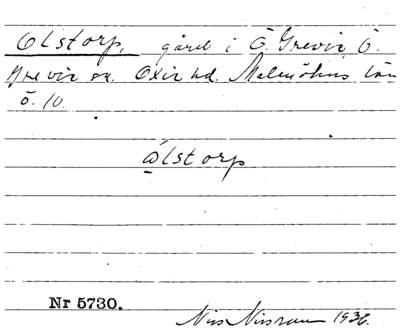 Olstorp, gård i Ö. Grevie, Ö.
Grevie sn. Oxie hd. Malmöhus län
ö. 10.
Ålstorp
Nr 5730.
Nils Nilsson 1936.